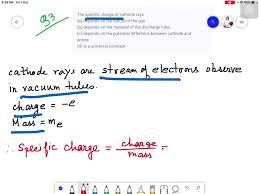 8:39 PM Fri 1 Oct
Q3
The specific charge of cathode rays
(a) depends on the nature of the gas
(b) depends on the material of the discharge tube
(c) depends on the potential difference between cathode and
anode
(d) is a universal constant
cathode rays are stream of electrons observe
in vacuum tubes.
charge = -e
Mass = me
∴ Specific charge = charge/mass =